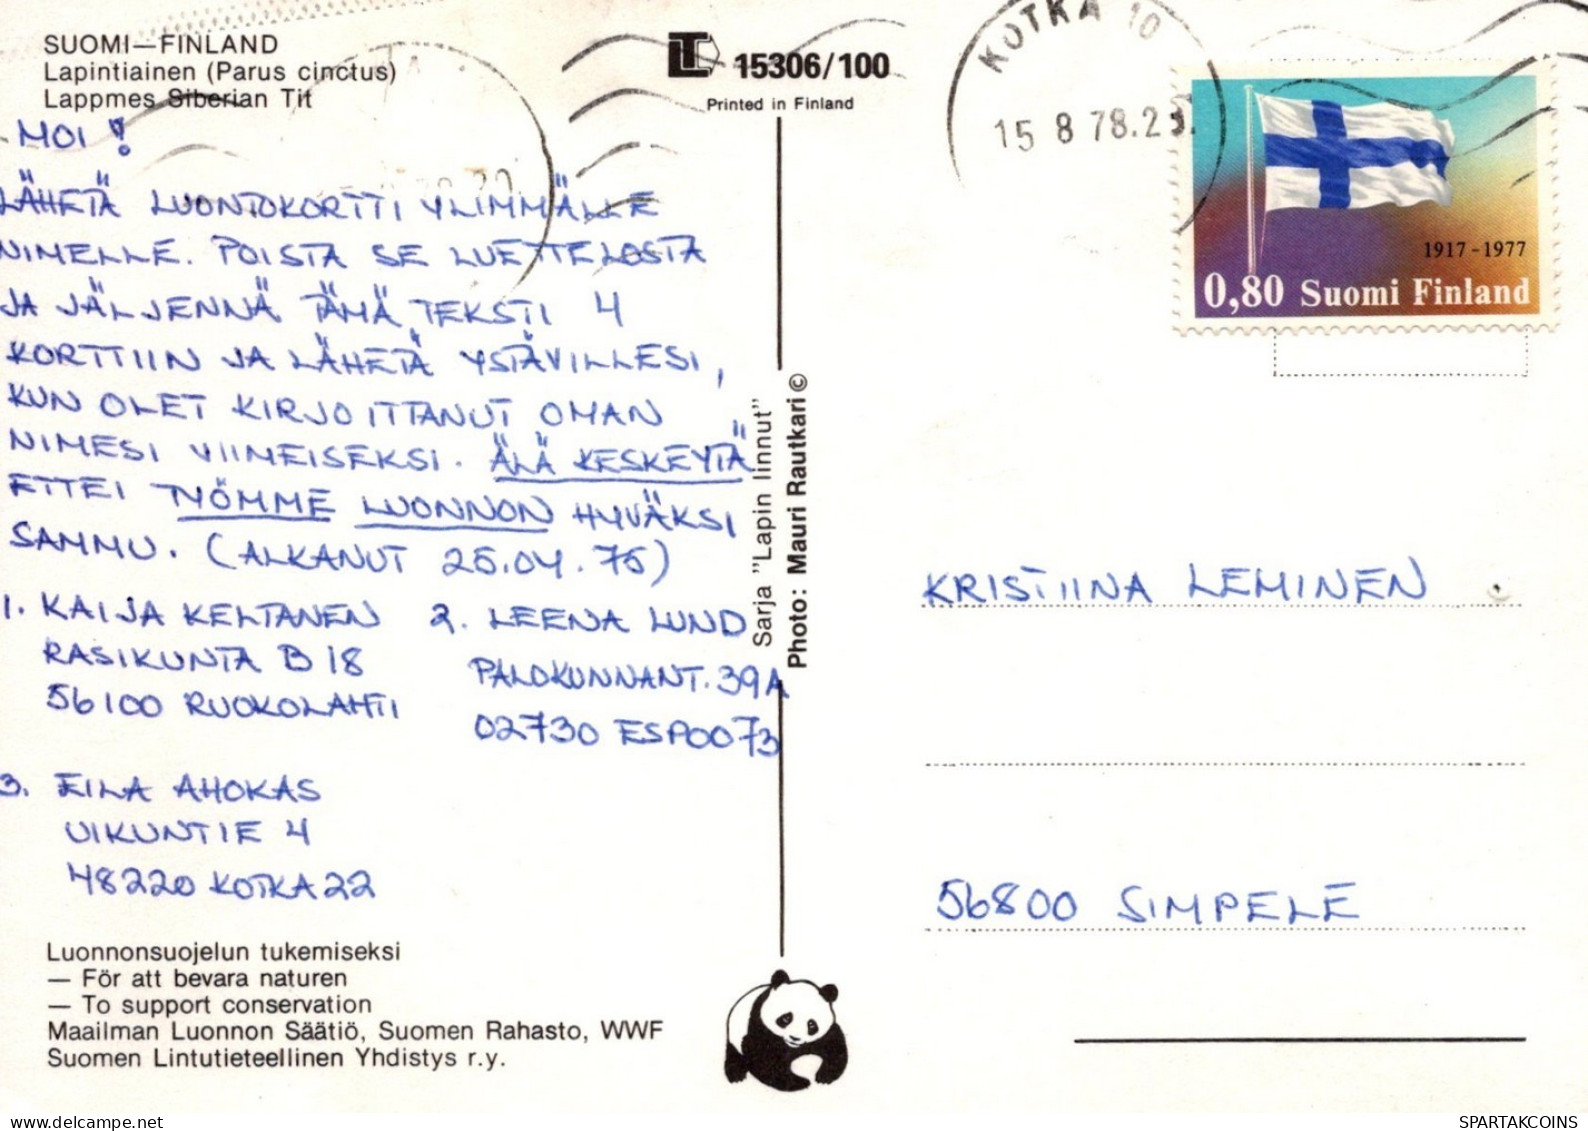 SUOMI—FINLAND
Lapintiainen (Parus cinctus)
Lappmes Siberian Tit
MOI!
LÄHETÄ LUONTOKORTTI YLIMMÄLLE
NIMELLE. POISTA SE LUETTELOSTA
JA JÄLJENNÄ TÄMÄ TEKSTI 4
KORTTIIN JA LÄHETÄ YSTÄVILLESI,
KUN OLET KIRJOITTANUT OMAN
NIMESI VIIMEISEKSI. ÄLÄ KESKEYTÄ
ETTEI TYÖMME LUONNON HYVÄKSI
SAMMU. (ALKANUT 25.04.75)
1. KAIJA KELTANEN
RASIKUNTA B 18
56100 RUOKOLAHTI
2. LEENA LUND
PALOKUNNANT. 39A
02730 ESPOO73
3. EILA AHOKAS
UIKUNTIE 4
48220 KOTKA 22
Luonnonsuojelun tukemiseksi
— För att bevara naturen
— To support conservation
Maailman Luonnon Säätiö, Suomen Rahasto, WWF
Suomen Lintutieteellinen Yhdistys r.y.
15306/100
Printed in Finland
Sarja "Lapin linnut"
Photo: Mauri Rautkari ©
KOTKA 10
15 8 78.
1917-1977
0,80 Suomi Finland
KRISTIINA LEMINEN
56800 SIMPELE
SPARTAKCOINS